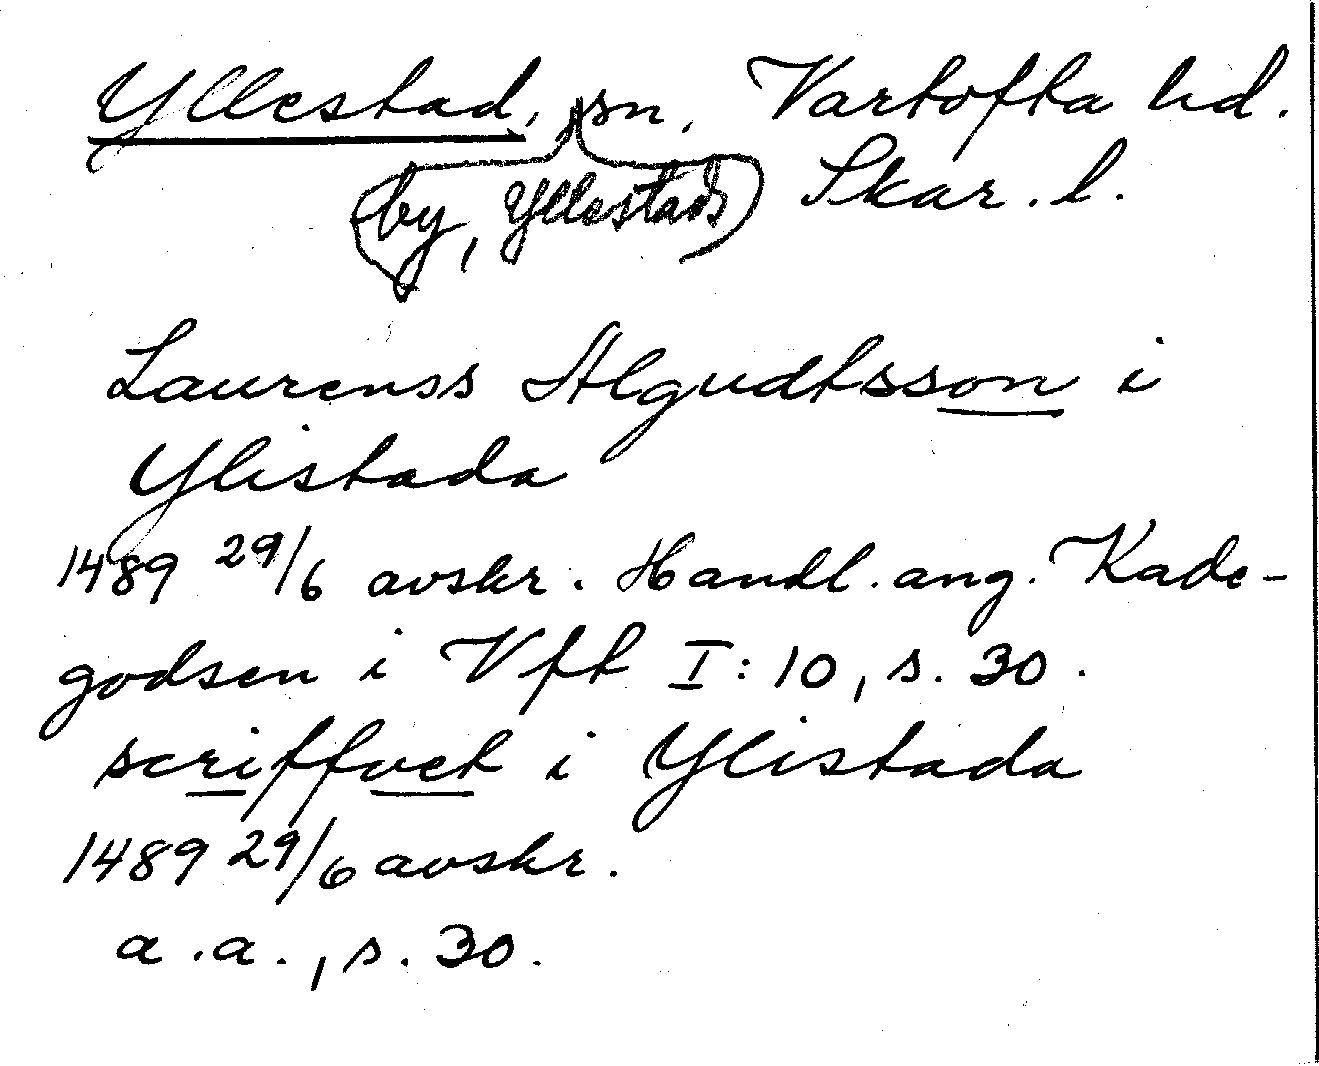 Yllestad, sn, Vartofta hd.
(by, Yllestads) Skar. l.
Laurenss Algudtsson i
Ylistada
1489 29/6 avskr. Handl. ang. Kade-
godsen i Vft I:10, s. 30.
scriffvet i Ylistada
1489 29/6 avskr.
a.a., s. 30.